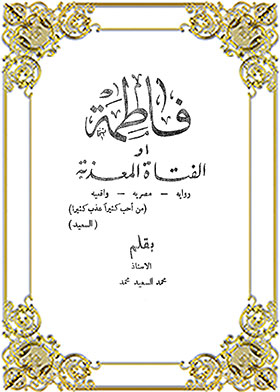 فاطمة
او
الفتاة المعذبة
روايه - مصريه - واقعيه
(من أحب كثيراً عذب كثيرا)
(السعيد)
بقلم
الاستاذ
محمد السعيد محمد